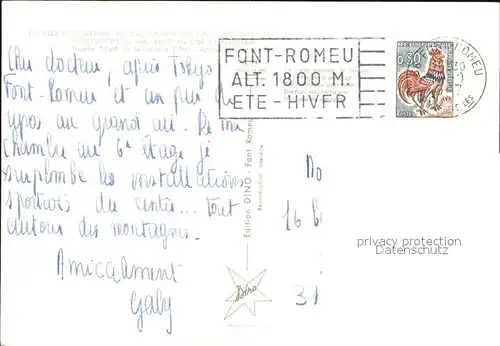 FONT-ROMEU
ALT. 1800 M.
ETE - HIVER
0,30
OMEU
Cher docteur, après Tokyo
Font-Romeu et un peu de
repos au grand air. De ma
chambre au 6e étage je
surplombe les installations
sportives du centre... tout
autour des montagnes.
Amicalement
Gaby
Edition DINO - Font Romeu
Reproduction interdite
Dino
16
31
privacy protection
Datenschutz